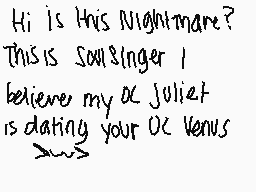 Hi is this Nightmare?
This is SoulSinger I
believe my OC Juliet
is dating your OC Venus
>w>